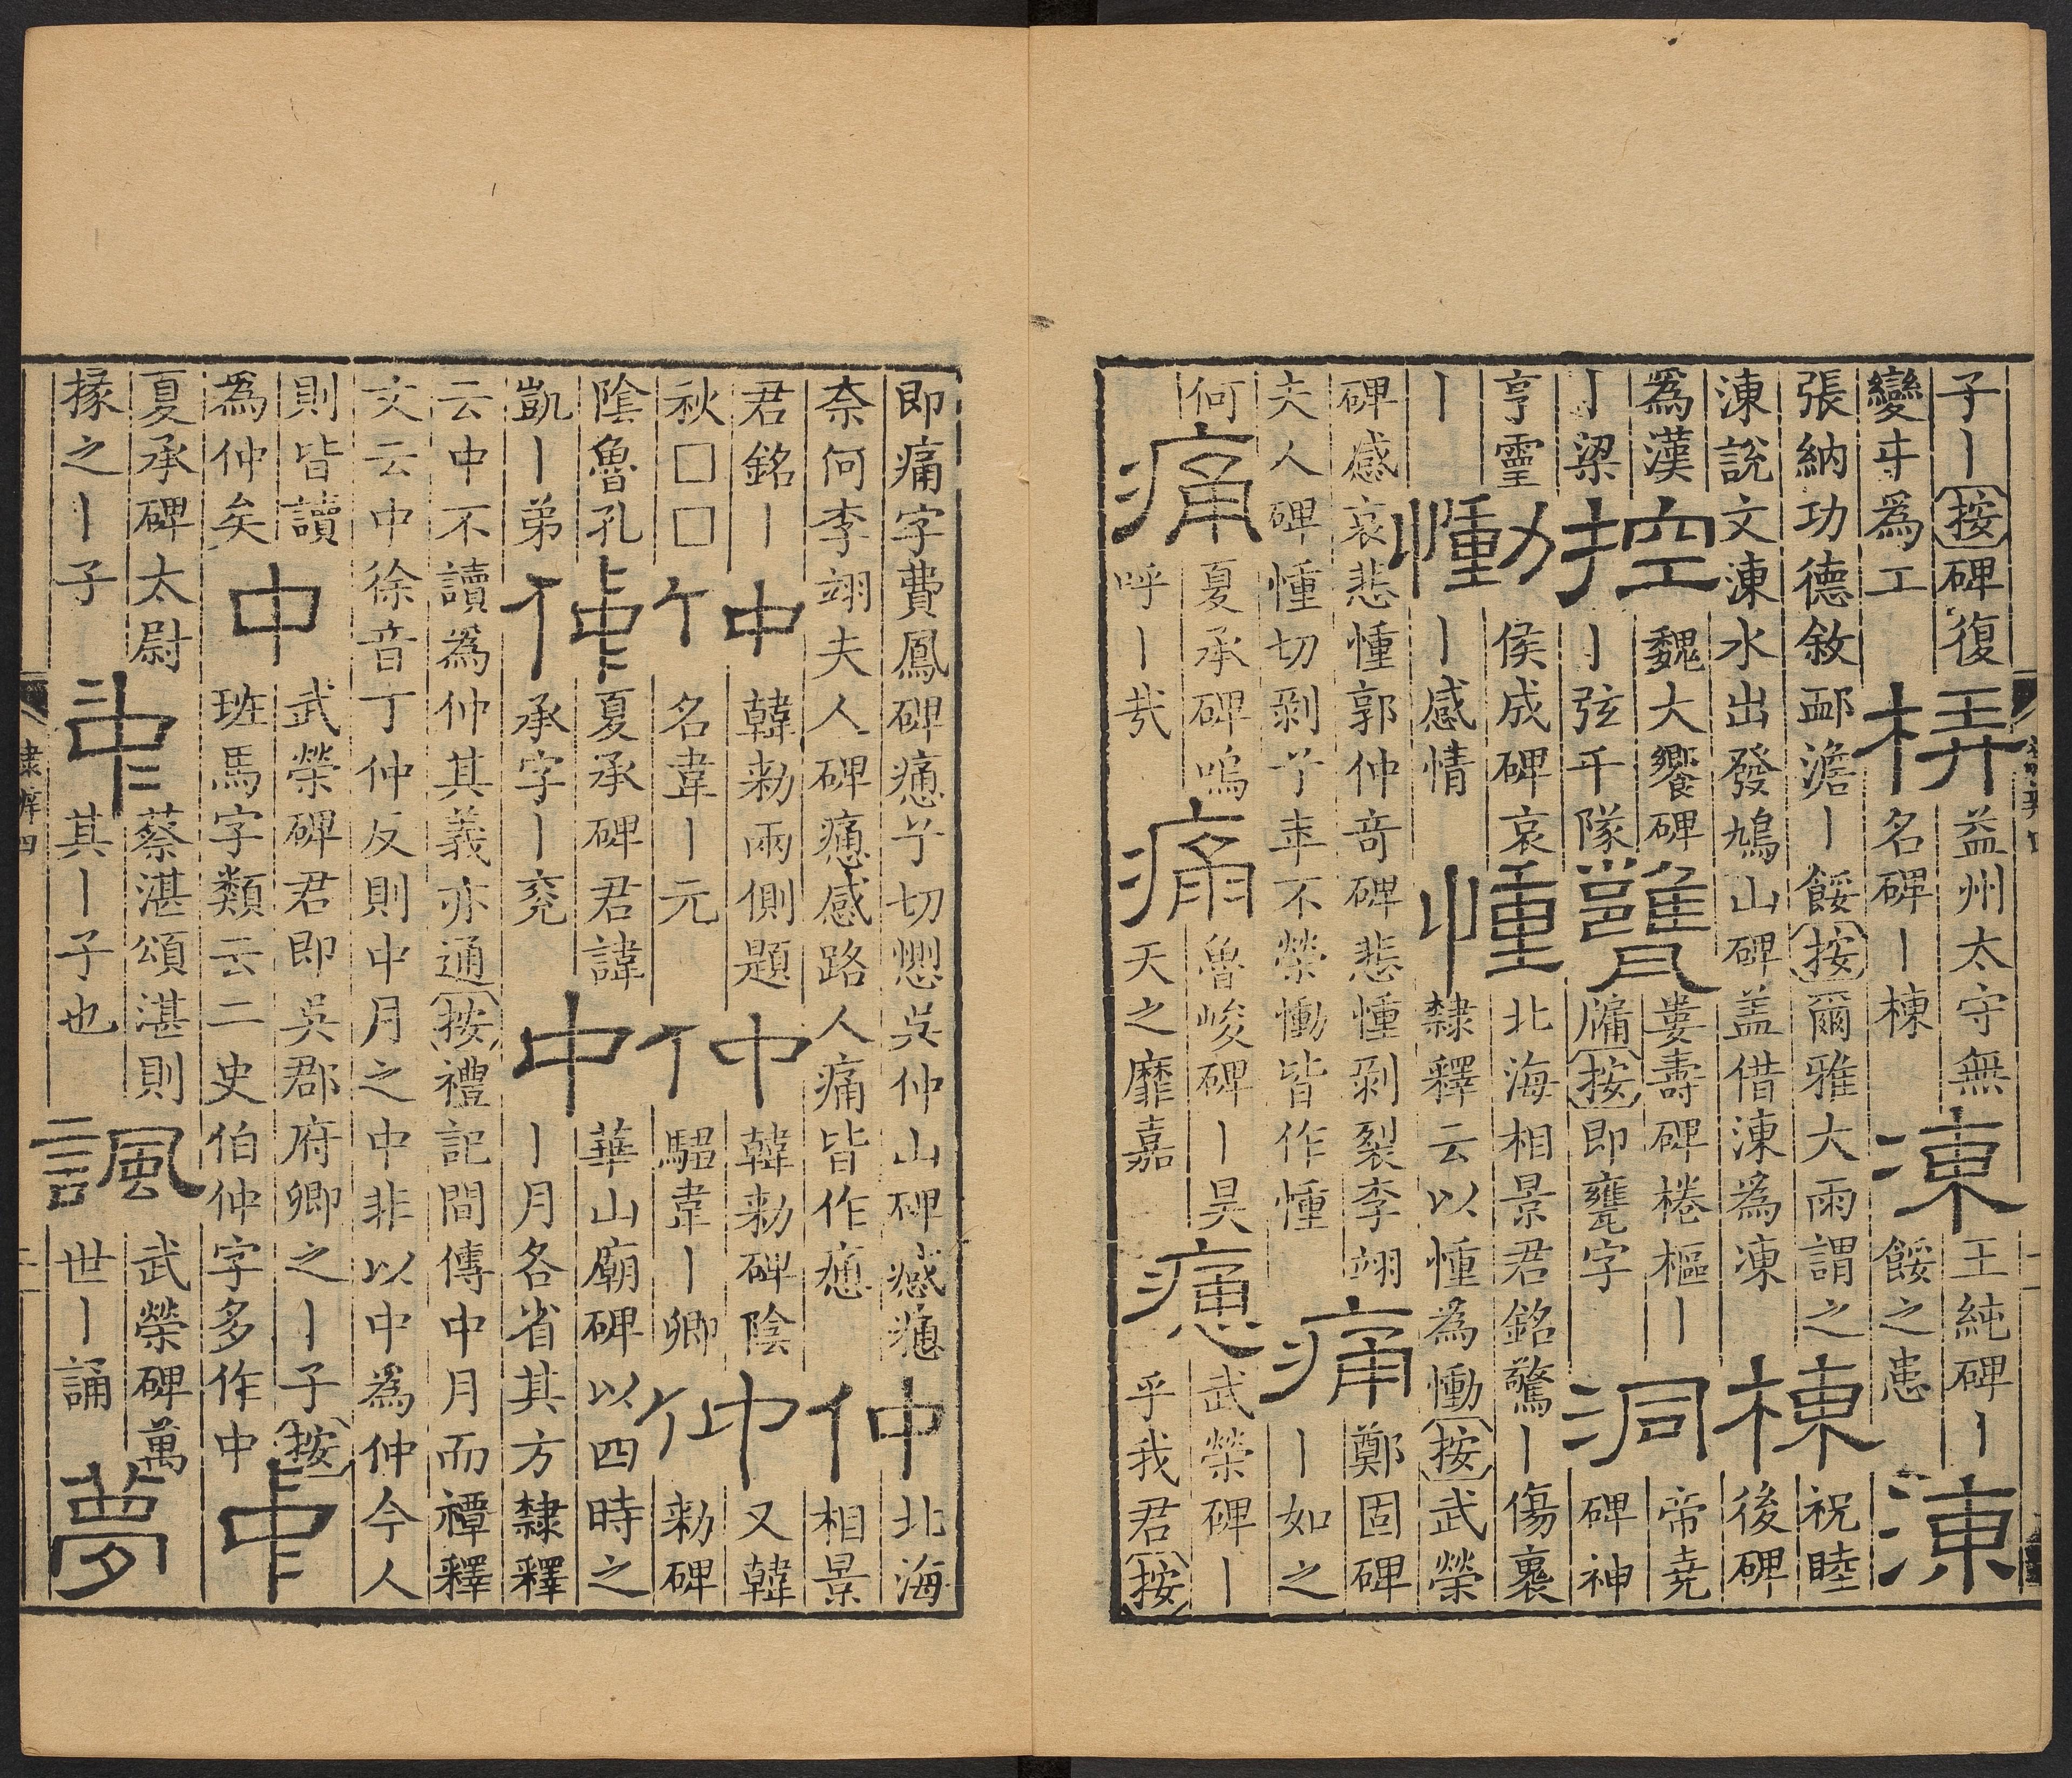 子丨按碑復
變㐄為工
梇
益州太守無
名碑丨棟
凍
王純碑丨
餒之患
涷
張納功德敘邳澹丨餒按爾雅大雨謂之
涷說文涷水出發鳩山碑盖借涷為凍
棟
祝睦
後碑
為漢
丨梁
控
魏大饗碑
丨弦平隊
婁壽碑棬樞丨
牖按即甕字
洞
帝堯
碑神
亨靈
丨
慟
侯成碑哀
丨感情
㣫
北海相景君銘驚丨傷裹
隸釋云以㣫為慟按武榮
碑感哀悲㣫郭仲奇碑悲㣫剥裂李翊
夫人碑㣫切剥兮年不榮慟皆作㣫
痛
鄭固碑
丨如之
何
痛
夏承碑嗚
呼丨哉
痛
魯峻碑丨昊
天之靡嘉
㾯
武榮碑丨
乎我君按
即痛字費鳳碑㾯兮切愡吳仲山碑感㾯
奈何李翊夫人碑㾯感路人痛皆作㾯
仲
北海
相景
君銘丨
秋□□
仲
韓勑兩側題
名韋丨元
仲
韓勑碑陰
騶韋丨卿
仲
又韓
勑碑
陰魯孔
凱丨弟
仲
夏承碑君諱
承字丨兖
中
華山廟碑以四時之
丨月各省其方隸釋
云中不讀為仲其義亦通按禮記間傳中月而禫釋
文云中徐音丁仲反則中月之中非以中為仲今人
則皆讀
為仲矣
中
武榮碑君即吳郡府卿之丨子按
班馬字類云二史伯仲字多作中
中
夏承碑太尉
掾之丨子
中
蔡湛頌湛則
其丨子也
諷
武榮碑萬
世丨誦
夢